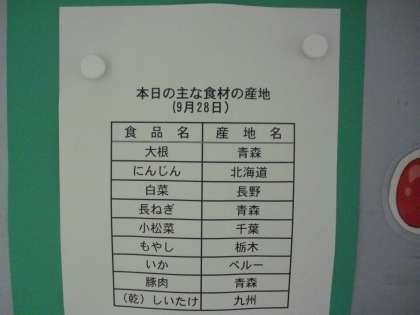 本日の主な食材の産地
(9月28日)
食品名 産地名
大根 青森
にんじん 北海道
白菜 長野
長ねぎ 青森
小松菜 千葉
もやし 栃木
いか ペルー
豚肉 青森
(乾)しいたけ 九州